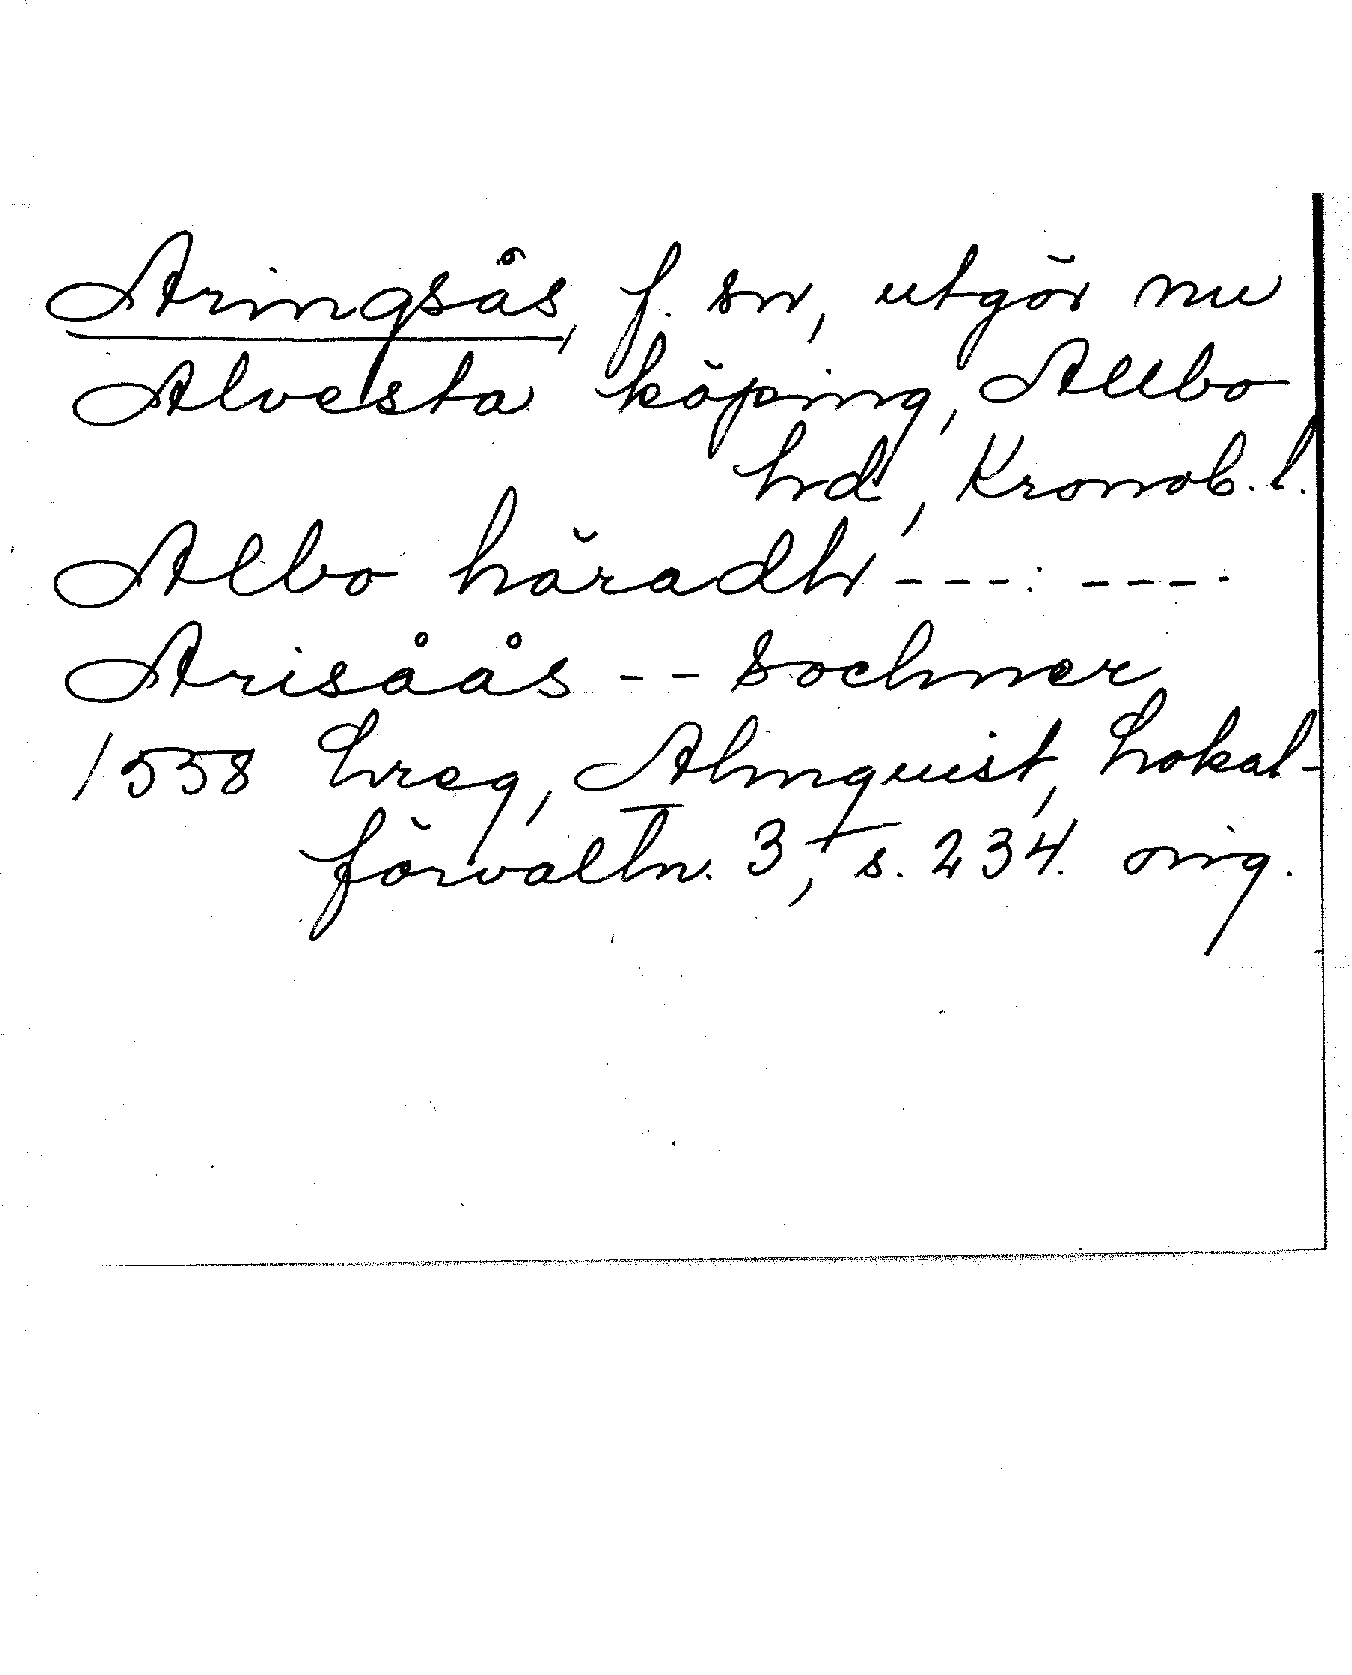 Aringsås, f. sn, utgör nu
Alvesta köping, Allbo
hd, Kronob. l.
Albo häradh ---: ----.
Arisåås -- sochner
1558 Lreg, Almquist, Lokal-
förvaltn. 3, s. 234. orig.